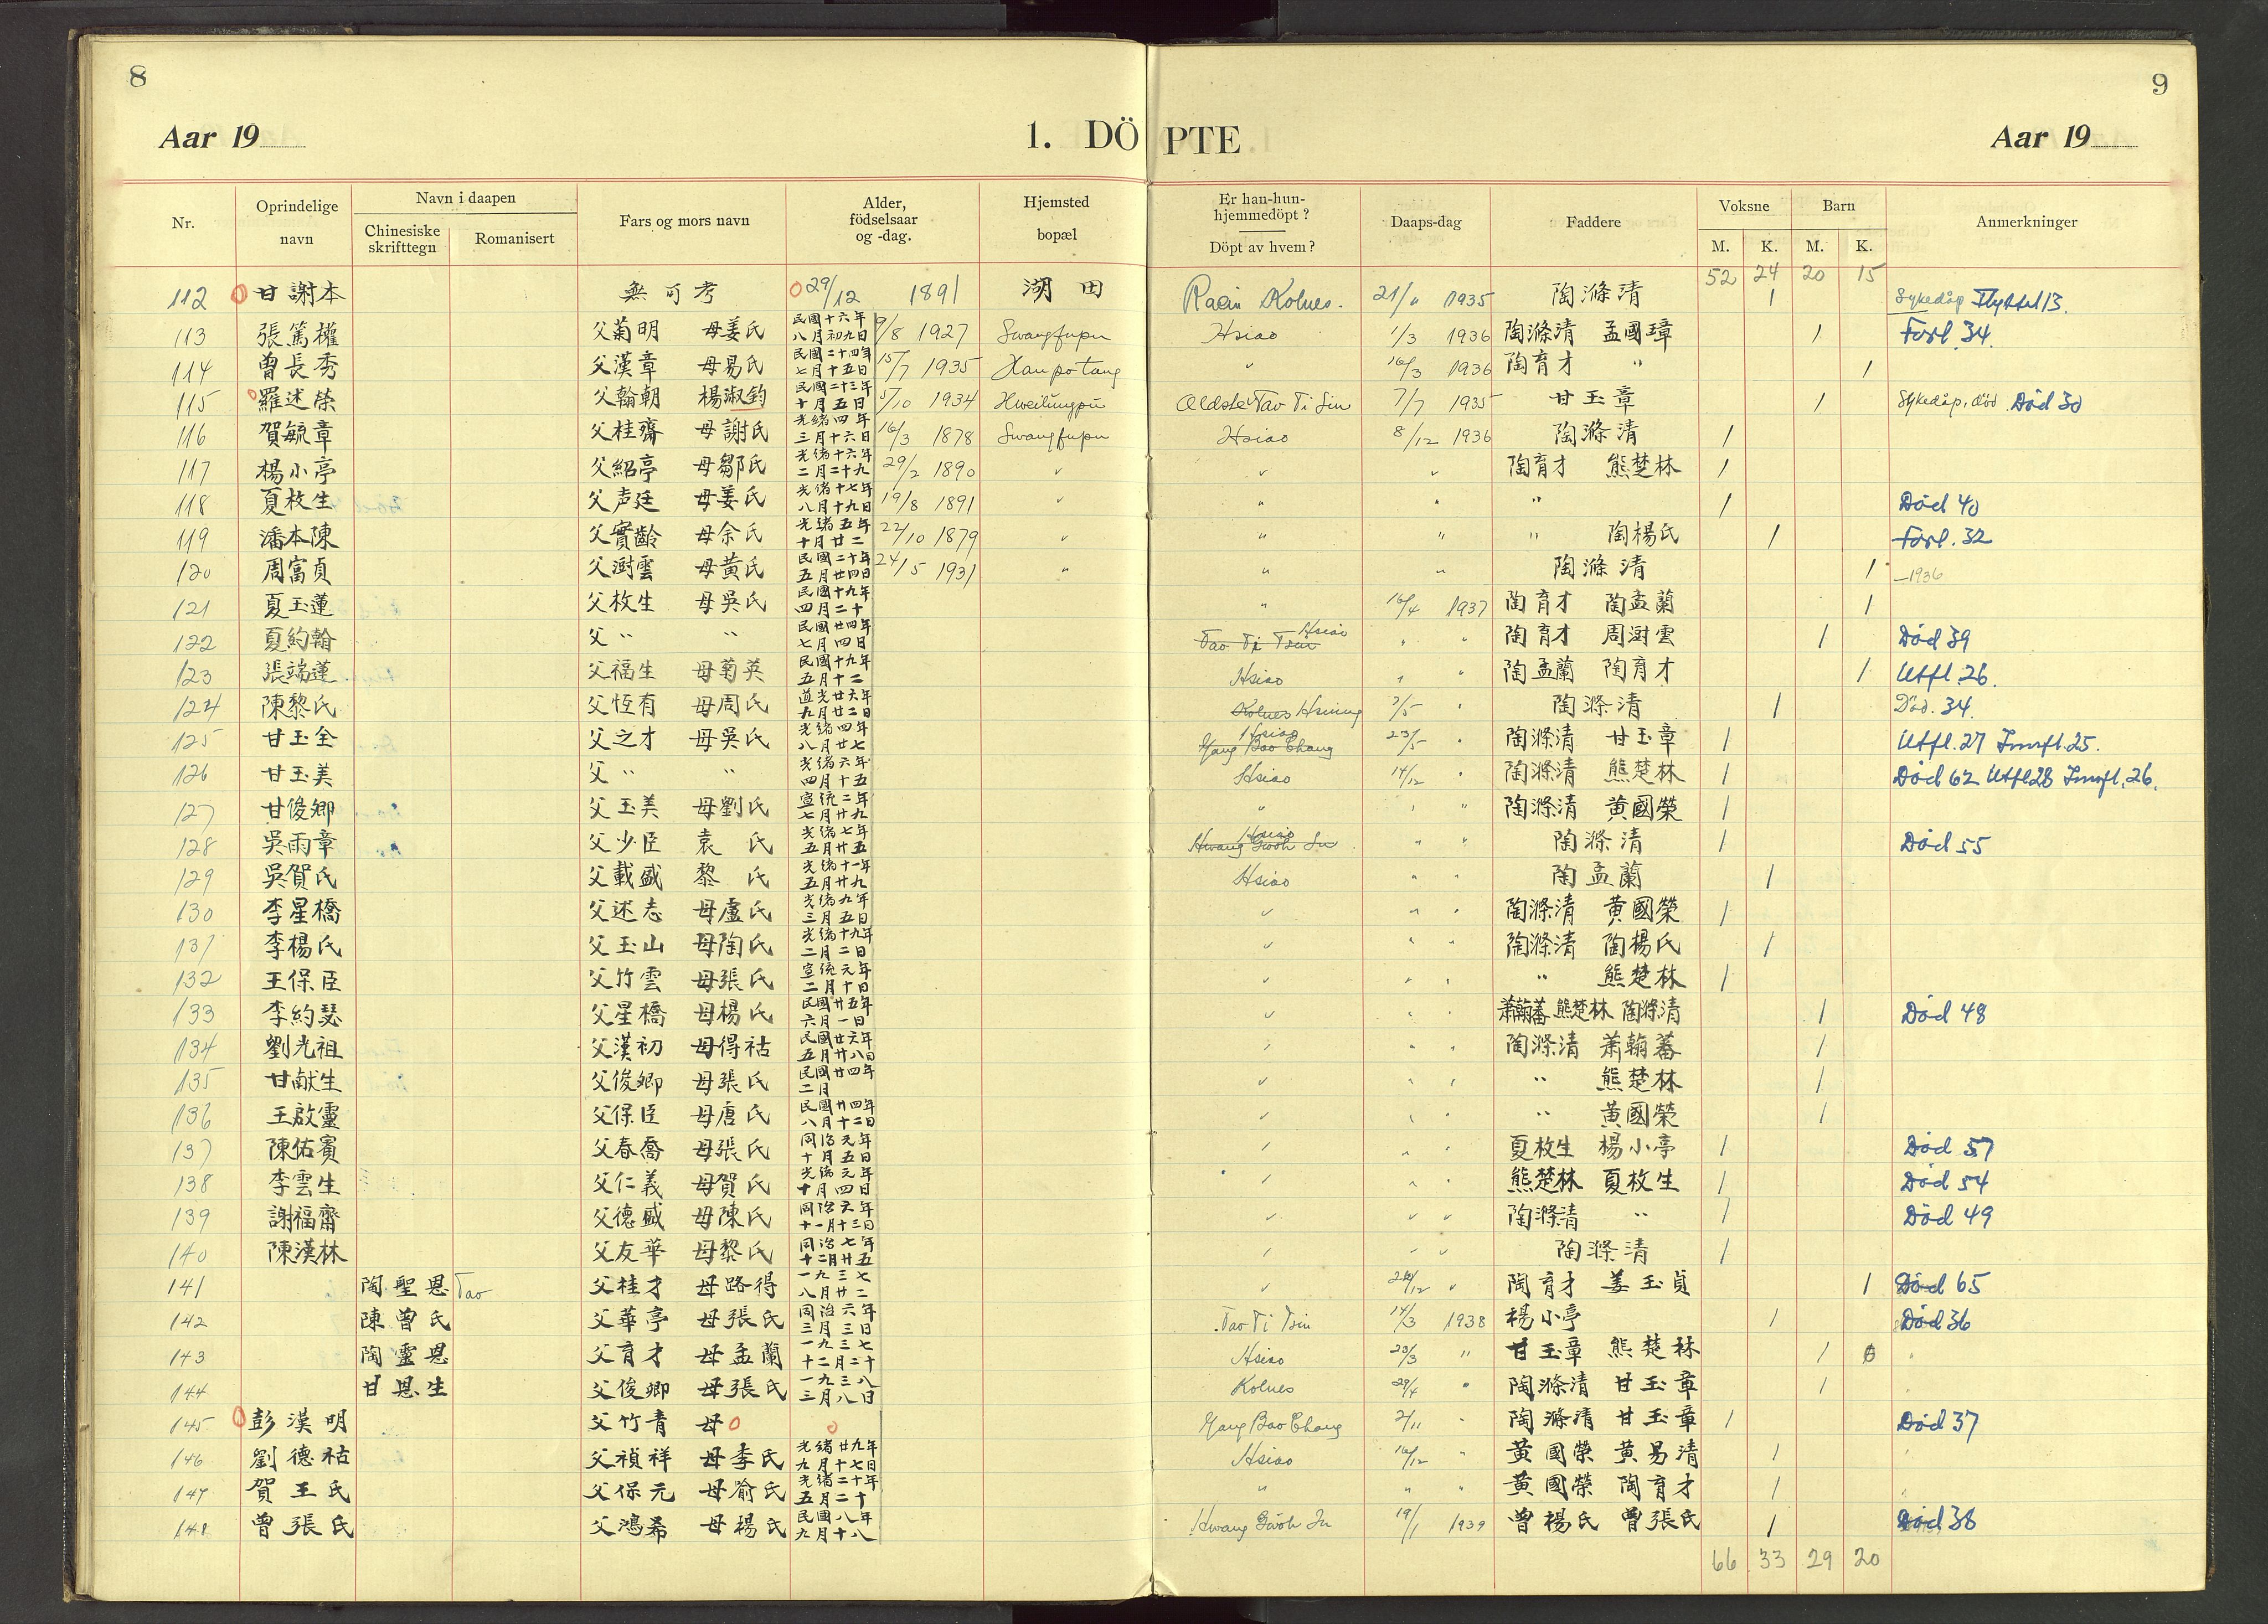 8
9
Aar 19
1. DÖPTE
Aar 19
Nr. Oprindelige navn Navn i daapen Chinesiske skrifttegn Romanisert Fars og mors navn Alder, födselsaar og -dag. Hjemsted bopæl Er han-hun-hjemmedöpt? Döpt av hvem? Daaps-dag Faddere Voksne M. K. Barn M. K. Anmerkninger
52 24 20 15
112 甘謝本 無可考 29/12 1891 湖田 Kolnes. 1935 陶滌清 1 Sykedåp 13.
113 張篤權 父菊明 母姜氏 民國十六年八月初九日 9/8 1927 Swangfupu Hsiao 1/3 1936 陶滌清 孟國璋 1 Forl. 34.
114 曾長秀 父漢章 母易氏 民國二十四年七月十五日 15/7 1935 Hanpotang " 16/3 1936 陶育才 " 1
115 羅述榮 父翰朝 楊淑鈞 民國二十三年十月五日 5/10 1934 Hweilungpu Oldste Tao Ti Sin 7/7 1935 甘玉章 1 Sykedåp, död. Död 30
116 賀毓章 父桂齋 母謝氏 光緒四年三月十六日 16/3 1878 Swangfupu Hsiao 8/12 1936 陶滌清 1
117 楊小亭 父紹亭 母鄒氏 光緒十六年二月二十九 29/2 1890 " " " 陶育才 熊楚林 1
118 夏枚生 父声廷 母姜氏 光緒十七年八月十九日 19/8 1891 " " " " 1 Död 40
119 潘本陳 父實齡 母余氏 光緒五年十月廿二 22/10 1879 " " " " 陶楊氏 1 Forl. 32
120 周富貞 父澍雲 母黃氏 民國二十年五月廿四日 24/5 1931 " " " 陶滌清 1 -1936
121 夏玉蓮 父枚生 母吳氏 民國十九年四月二十 " 16/4 1937 陶育才 陶孟蘭 1
122 夏約翰 父" " 民國廿四年七月四日 Tao Ti Tsin Hsiao " " 陶育才 周澍雲 1 Död 39
123 張端蓮 父福生 母菊英 民國十九年五月十二 Hsiao " " 陶孟蘭 陶育才 1 Utfl 26.
124 陳黎氏 父恆有 母周氏 道光廿六年九月廿二日 Kolnes Hsiung 3/5 " 陶滌清 1 Död. 34.
125 甘玉全 父之才 母吳氏 光緒四年八月廿七 Yang Bao Chang Hsiao 23/5 " 陶滌清 甘玉章 1 Utfl. 27 Innfl. 25.
126 甘玉美 父" " 光緒六年四月十五 Hsiao 14/12 " 陶滌清 熊楚林 1 Död 62 Utfl 28 Innfl. 26.
127 甘俊卿 父玉美 母劉氏 宣統二年七月廿九 " " " 陶滌清 黃國榮 1
128 吳雨章 父少臣 袁氏 光緒七年五月廿五 Hwang Gwoh Ju Hsiao " " 陶滌清 1 Död 55
129 吳賀氏 父載盛 黎氏 光緒十一年五月廿九 Hsiao " " 陶孟蘭 1
130 李星橋 父述志 母盧氏 光緒九年三月五日 " " " 陶滌清 黃國榮 1
131 李楊氏 父玉山 母陶氏 光緒十九年二月二日 " " " 陶滌清 陶楊氏 1
132 王保臣 父竹雲 母張氏 宣統元年二月十日 " " " " 熊楚林 1
133 李約瑟 父星橋 母楊氏 民國廿五年六月一日 " " " 蕭翰蕃 熊楚林 陶滌清 1 Död 48
134 劉光祖 父漢初 母得祜 民國廿六年五月廿八日 " " " 陶滌清 蕭翰蕃 1
135 甘献生 父俊卿 母張氏 民國廿四年二月 " " " " 熊楚林 1
136 王啟靈 父保臣 母唐氏 民國廿四年八月十二日 " " " " 黃國榮 1
137 陳佑賓 父春喬 母張氏 同治元年十月五日 " " " 夏枚生 楊小亭 1 Död 57
138 李雲生 父仁義 母賀氏 光緒元年十月四日 " " " 熊楚林 夏枚生 1 Död 54
139 謝福齋 父德盛 母陳氏 同治六年十一月十三日 " " " 陶滌清 " 1 Död 49
140 陳漢林 父友華 母黎氏 同治七年十二月廿五 " " " 陶滌清 1
141 陶聖恩 Tao 父桂才 母路得 一九三七八月廿二 " 26/12 " 陶育才 姜玉貞 1 Död 65
142 陳曾氏 父華亭 母張氏 同治六年三月三日 Tao Ti Tsin 14/3 1938 楊小亭 1 Död 36
143 陶靈恩 父育才 母孟蘭 一九三七十二月二十 Hsiao 23/3 " 甘玉章 熊楚林 1
144 甘恩生 父俊卿 母張氏 一九三八三月八日 Kolnes 29/4 " 陶滌清 甘玉章 1
145 彭漢明 父竹青 母 Yang Bao Chang 2/11 " 陶滌清 甘玉章 1 Död 37
146 劉德祜 父禎祥 母李氏 光緒廿九年九月十七日 Hsiao 16/12 " 黃國榮 黃易清 1
147 賀王氏 父保元 母俞氏 光緒二十年五月二十 " " " 黃國榮 陶育才 1
148 曾張氏 父鴻希 母楊氏 民國八年九月十八 Hwang Gwoh Ju 19/1 1939 曾楊氏 曾張氏 1 Död 38
66 33 29 20